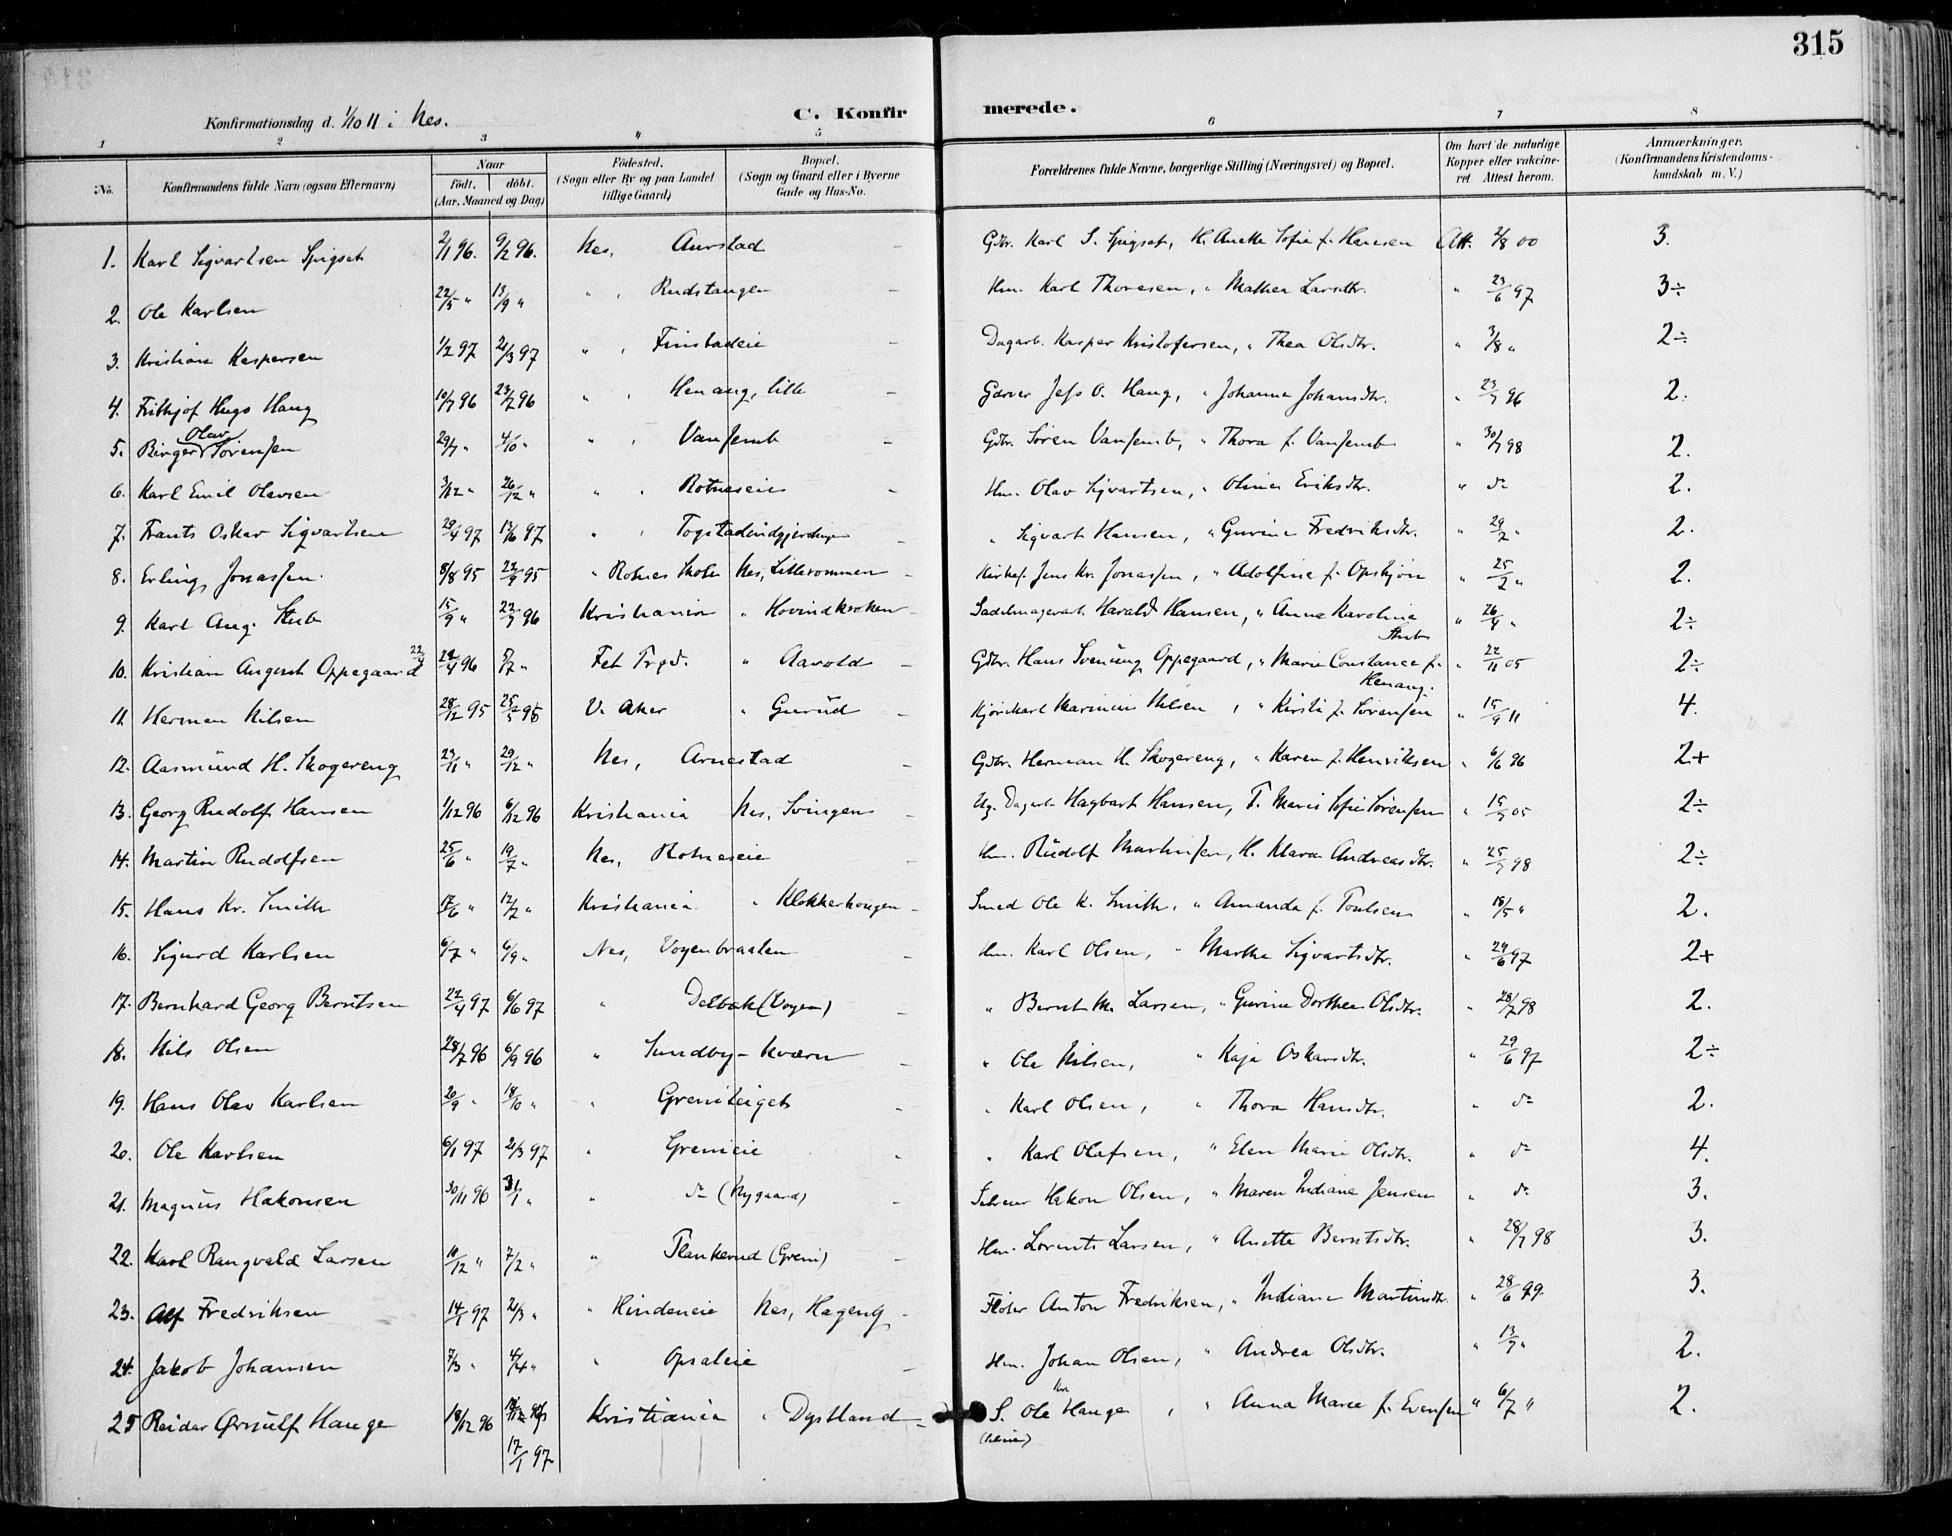 315
Konfirmationsdag d. 1/10 11 i Nes.
C. Konfirmerede.
1 2 3 " 5 6 7 8
No. Konfirmandens fulde Navn (ogsaa Efternavn) Naar födt. döbt. (Aar, Maaned og Dag) Födested. (Sogn eller By og paa Landet tillige Gaard) Bopæl. (Sogn og Gaard eller i Byerne Gade og Hus-No. Forældrenes fulde Navne, borgerlige Stilling (Næringsvei) og Bopæl. Om havt de naturlige Kopper eller vakcineret. Attest herom. Anmærkninger. (Konfirmandens Kristendomskundskab m. V.)
1. Karl Sigvartsen Spigset 2/1 96. 9/2 96. Nes, Aurstad Gdbr. Karl S. Spigset, H. Anette Sofie f. Hansen Att. 2/8 00 3.
2. Ole Karlsen 22/5 " 13/9 " " , Rudstangen Hm. Karl Thoresen, " Mathea Larsdtr. " 23/6 97 3÷
3. Kristian Kaspersen 1/2 97 21/3 97 " , Finstadeie Dagarb. Kasper Kristofersen, " Thea Olsdtr. " 3/8 " 2÷
4. Frithjof Hugo Haug 10/7 96 23/7 96 " , Henaug, lille Garver Jess O. Haug, " Johanne Johansdtr. " 23/7 96 2.
5. Birger Olav Sörensen 29/7 " 4/10 " " , Vansemb Gdbr. Sören Vansemb, " Thora f. Vansemb " 30/7 98 2.
6. Karl Emil Olavsen 3/12 " 26/12 " " , Rotneseie Hm. Olav Sigvartsen, " Oline Eriksdtr. " do 2.
7. Frants Oskar Sigvartsen 29/4 97 13/6 97 " , Togstadindgjerdingen " Sigvart Hansen, " Gurine Fredriksdtr. " 29/7 " 2.
8. Erling Jonassen. 8/8 95 22/9 95 " Rotnes Skole Nes, Lillerommen Kirkes. Jens Kr. Jonassen, " Adolfine f. Opskjön " 25/2 " 2.
9. Karl Aug. Stub 15/9 " 22/7 96 Kristiania " Hovindkroken Sadelmagerarb. Harald Hansen, " Anna Karoline Stub " 26/8 " 2÷
10. Kristian August Oppegaard 22/4 96 5/7 " Fet Prgd. " Aavold Gdbr. Hans Svenung Oppegaard, " Marie Constance f. Henaug. " 22/11 05 2÷
11. Herman Nilsen 28/12 95 25/5 96 V. Aker " Gurud Kjörekarl Marinius Nilsen, " Kirsti f. Sörensen " 15/9 11 4.
12. Aasmund H. Skogereng 23/11 " 29/12 " Nes, Arnestad Gdbr. Herman H. Skogereng, " Karen f. Henriksen " 6/6 96 2+
13. Georg Rudolf Hansen 1/12 96 6/12 96 Kristiania Nes, Svingen Ug. Dagarb. Hagbart Hansen, T. Marie Sofie Sörensen " 15/7 05 2÷
14. Martin Rudolfsen 25/6 " 19/7 " Nes, Rotneseie Hm. Rudolf Martinsen, H. Klara Andreasdtr. " 25/7 98 2÷
15. Hans Kr. Smith 17/6 " 12/7 " Kristiania " Klokkerhougen Smed Ole K. Smith, " Amanda f. Poulsen " 18/5 " 2.
16. Sigurd Karlsen 6/7 " 6/9 " Nes, Voyenbraaten Hm. Karl Olsen, " Marthe Sigvartsdtr. " 29/6 97 2+
17. Bernhard Georg Berntsen 22/4 97 6/6 97 " Delbæk (Voyen) " Bernt M. Larsen, " Gurine Dorthea Olsdtr. " 28/7 98 2.
18. Nils Olsen 28/7 96 6/9 96 " Sundby-Kværn " Ole Nilsen, " Kaja Oskarsdtr. " 29/6 97 2÷
19. Hans Olav Karlsen 20/9 " 18/10 " " Greniteiget " Karl Olsen, " Thora Hansdtr. " do 2.
20. Ole Karlsen 6/1 97 21/3 97 " Grenieie " Karl Olafsen, " Elen Marie Olsdtr. " do 4.
21. Magnus Hakonsen 30/11 96 31/1 " " do (Nygaard) Hakon Olsen, " Maren Indiane Jensen " do 3.
22. Karl Rangvald Larsen 10/12 " 7/2 " " Plankerud (Greni) Hm. Lorents Larsen, " Anette Berntsdtr. " 28/7 98 3.
23. Alf Fredriksen 14/1 97 21/3 " " Hindeneie Nes, Hageng Flöter Anton Fredriksen, " Indiane Martinsdtr. " 28/6 99. 3.
24. Jakob Johansen 7/3 " 4/4 " " Opsaleie Hm. Johan Olsen, " Andrea Olsdtr. " 13/7 " 2.
25 Reidar Örnulf Hauge 18/12 96 17/1 97 Kristiania " Dystland S. Ole Kr. Hauge, " Anna Marie f. Evensen " 6/7 " 2.